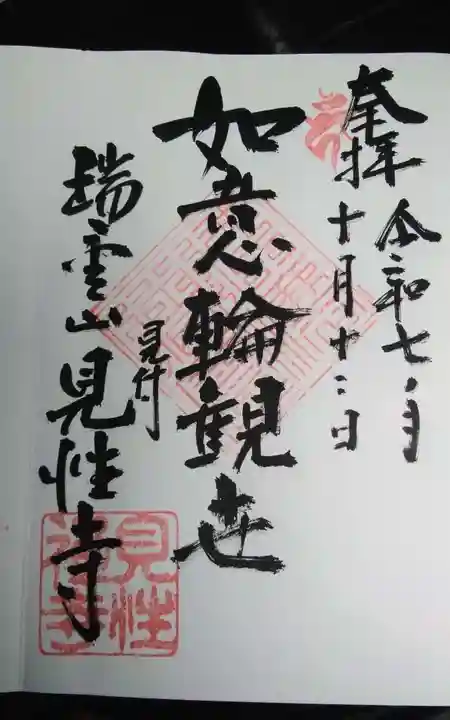 奉拝
令和七年
十月十二日
如意輪観世
見付
瑞雲山見性寺
見性禅寺